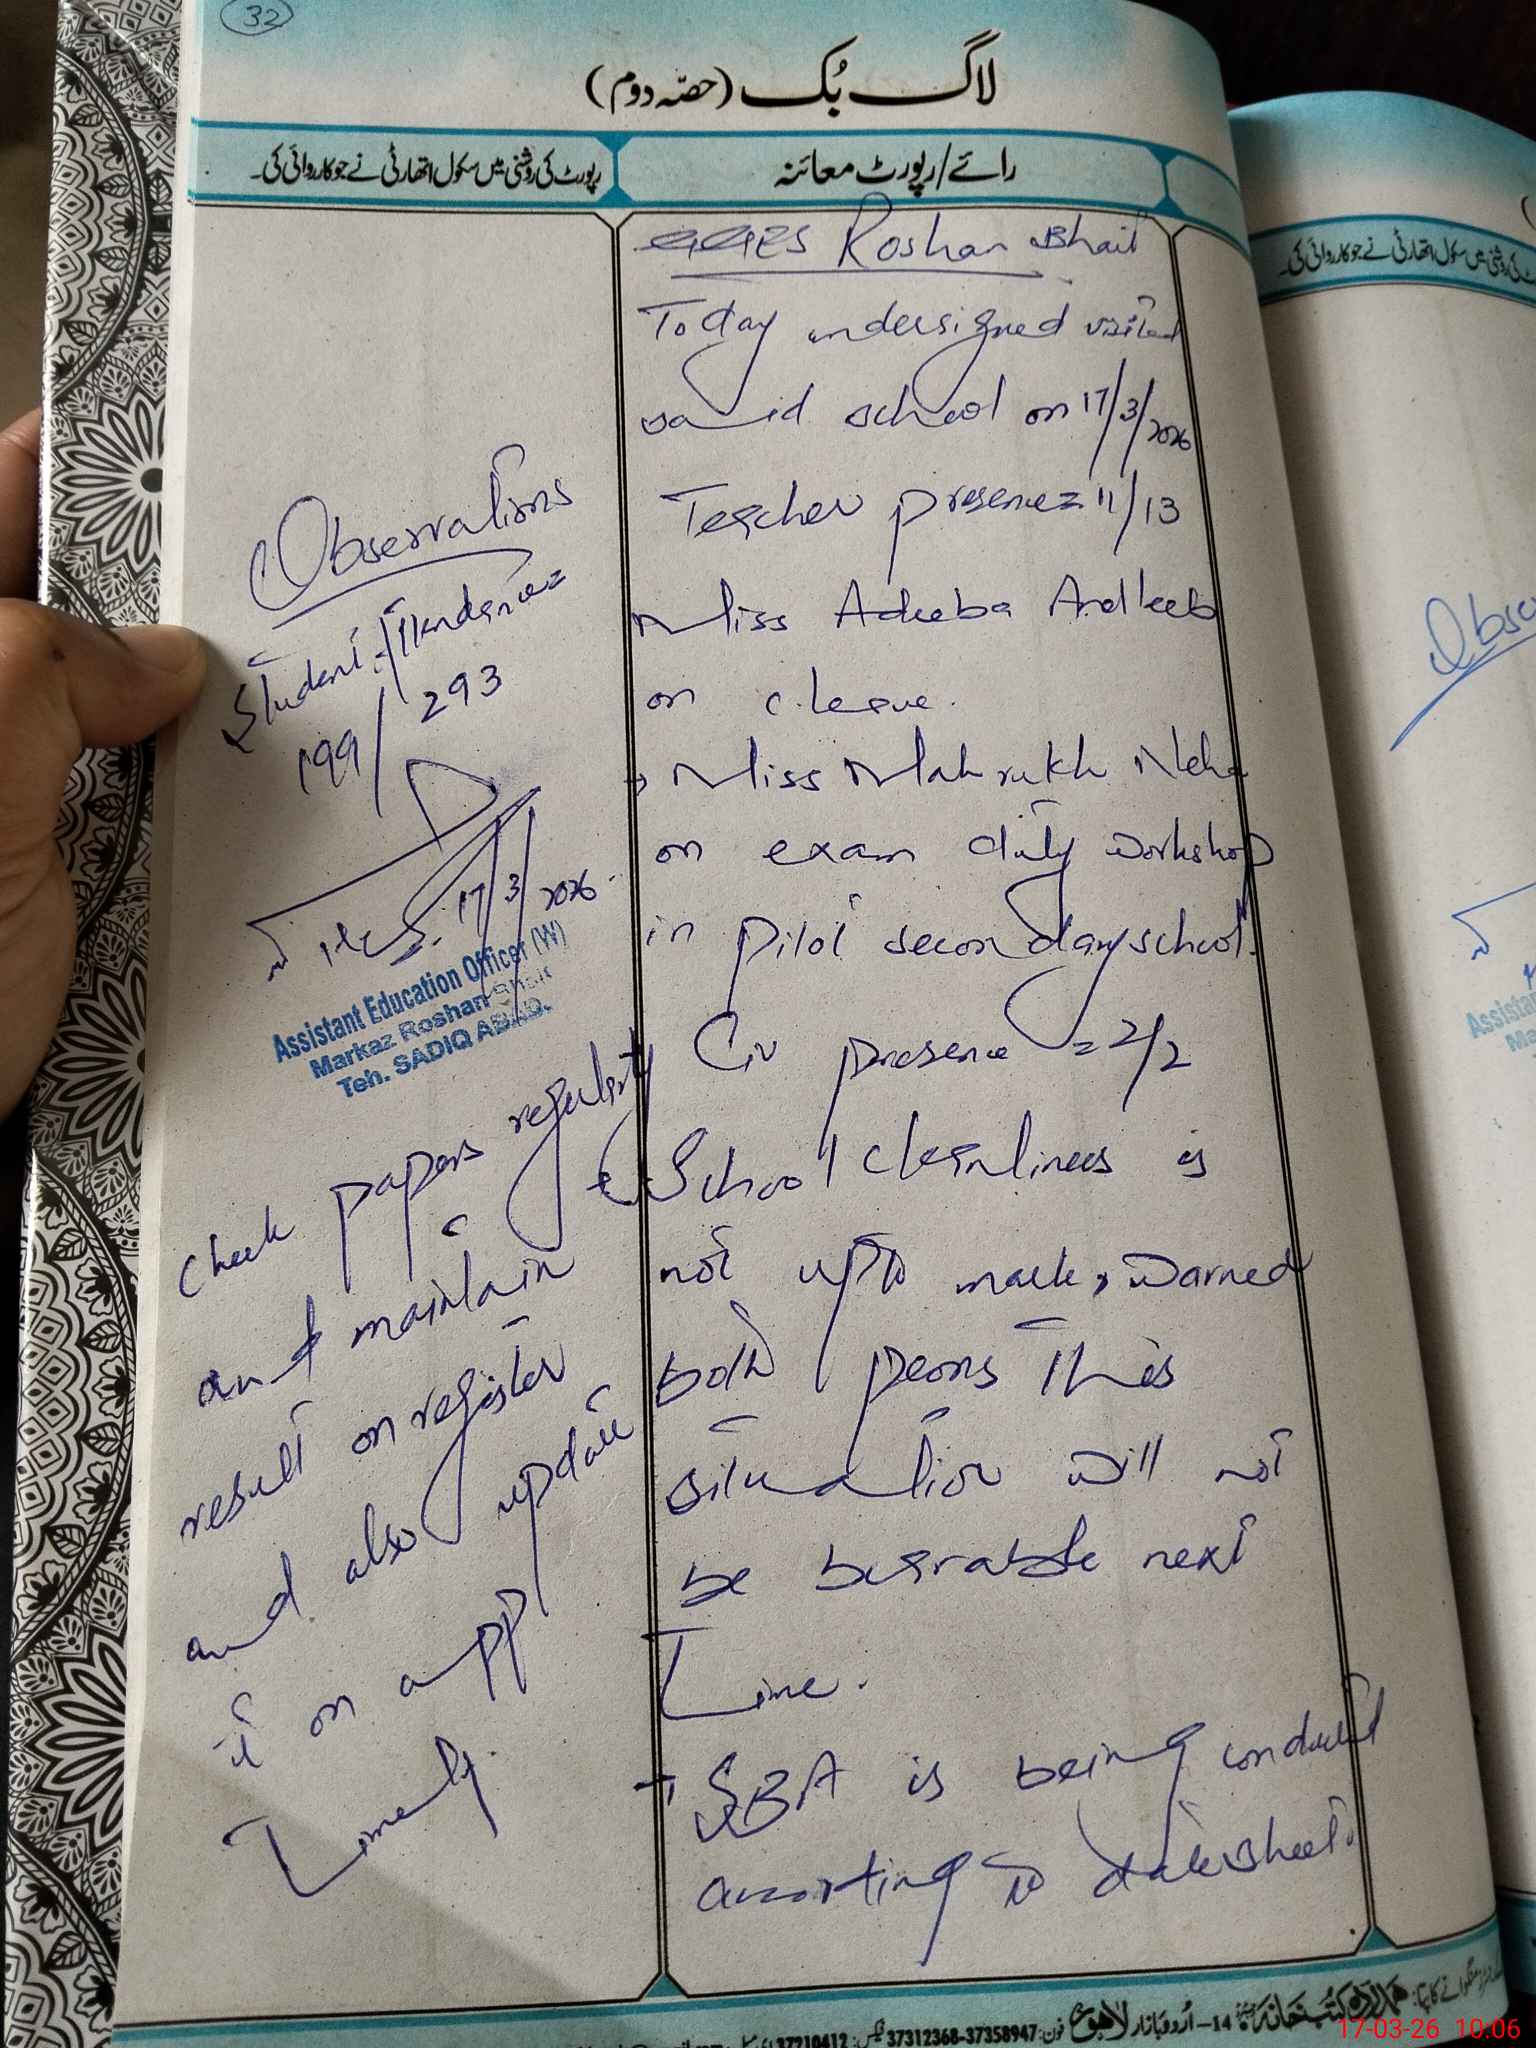 32
لاگ بُک (حصّہ دوم)
رائے/رپورٹ معائنہ
رپورٹ کی روشنی میں سکول اتھارٹی نے جو کارروائی کی۔
GGES Roshan Bhait
Today undersigned visited
said school on 17/3/2026
Teacher presence = 11/13
Miss Adeeba Andleeb
on c.leave.
→ Miss Mahrukh Neha
on exam duty workshop
in pilot secondary school.
Civ presence = 2/2
School cleanliness is
not upto mark, warned
both peons this
situation will not
be bearable next
time.
→ SBA is being conducted
according to datesheet.
Observations
Student Attendance =
199/293
17/3/2026
Assistant Education Officer (W)
Markaz Roshan
Teh. SADIQ ABAD.
Check papers regularly
and maintain
result on register
and also update
it on app
Timely
رپورٹ کی روشنی میں سکول اتھارٹی نے جو کارروائی کی۔
ہمدرد کتب خانہ 14- اُردو بازار لاہور فون: 37358947-37312368 فیکس: 37210412
17-03-26 10:06